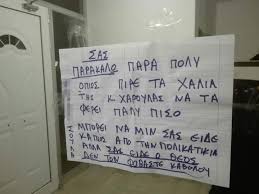 ΣΑΣ
ΠΑΡΑΚΑΛΩ ΠΑΡΑ ΠΟΛΥ
ΟΠΙΟΣ ΠΙΡΕ ΤΑ ΧΑΛΙΑ
ΤΗΣ Κ ΧΑΡΟΥΛΑΣ ΝΑ ΤΑ
ΦΕΡΕΙ ΠΑΛΥ ΠΙΣΟ
ΜΠΟΡΕΙ ΝΑ ΜΙΝ ΣΑΣ ΕΙΔΕ
ΚΑΠΙΟΣ ΑΠΟ ΤΗΝ ΠΟΛΙΚΑΤΙΚΙΑ
ΑΛΛΑ ΣΑΣ ΕΙΔΕ Ο ΘΕΟΣ
ΔΕΝ ΤΟΝ ΦΟΒΑΣΤΕ ΚΑΘΟΛΟΥ